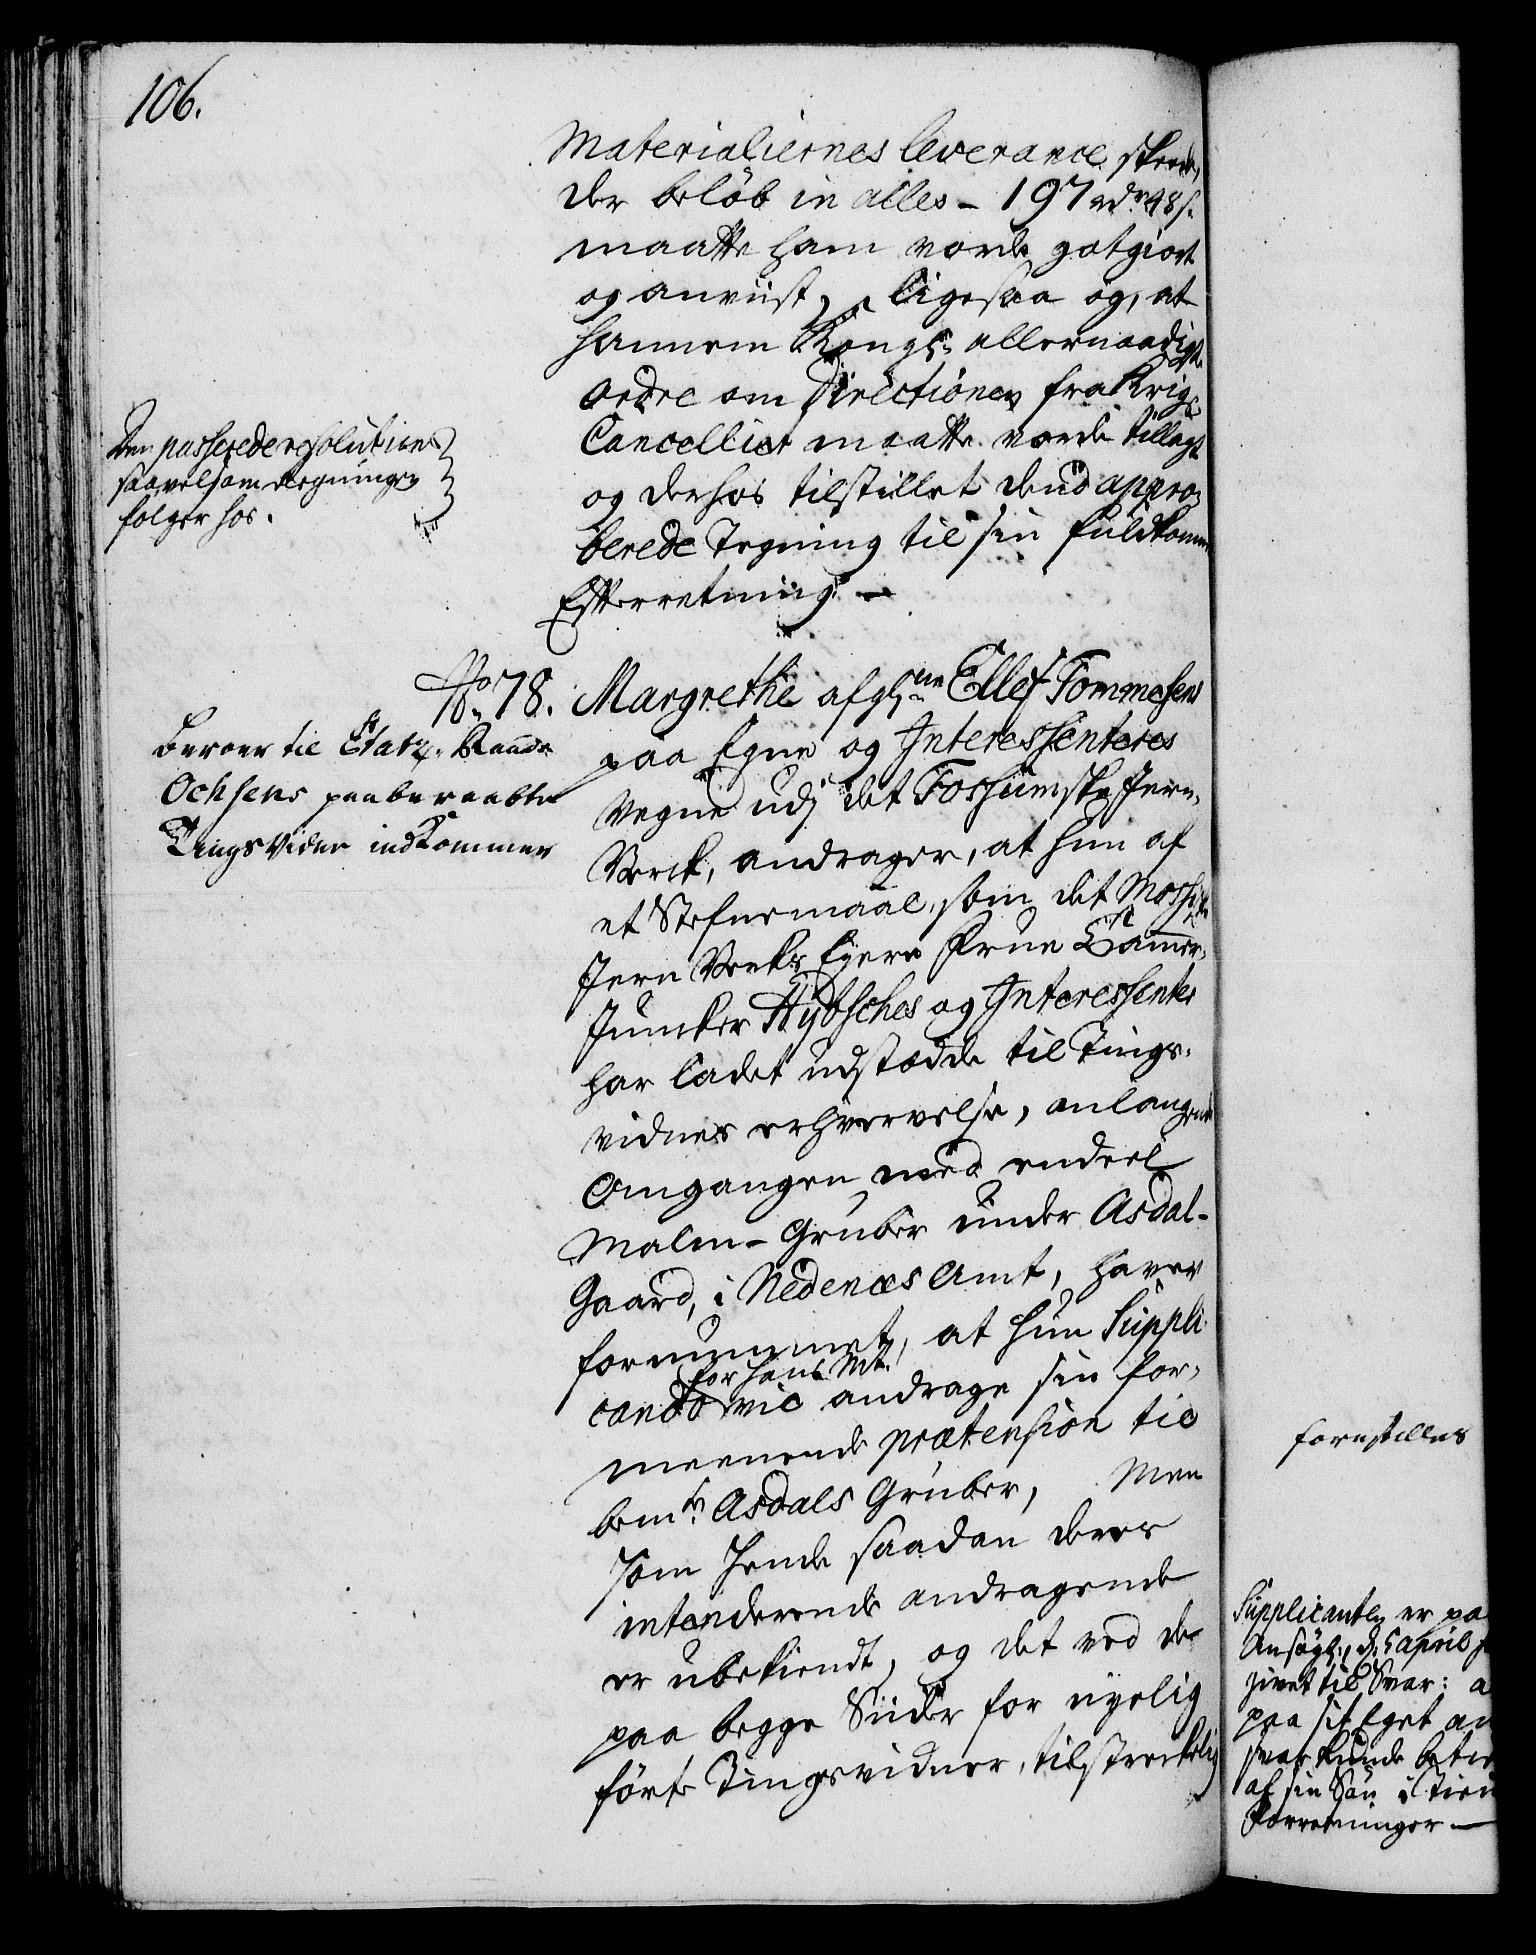 106.
Materialiernes leverance skeede,
der beløb in alles - 197 rdr 48 s.
maatte ham vorde godtgiort
og anviist, ligesaa og, at
hannem Kongl: allernaadigste
ordre om Directionen fra Krigs-
Cancelliet maatte vorde tillagt
og derhos tilstillet dend appro-
berede Tegning til sin fuldkomne
Efterretning. -
Den passerede resolution
saavelsom Regningen
følger hos.
No. 78. Margrethe afg: Ellef Tommesens
paa Egne og Interessenteres
Vegne udj det Fossumske Jern-
Verck, andrager, at hun af
et Stefnemaal, som det Mossiske
Jern Vercks Eyere Frue Cammer-
Juncker Hübsches og Interessenter
har ladet udstædde til Tings-
vidnes erhvervelse, anlangende
Omgangen med endeel
Malm-Gruber under Asdal-
Gaard, i Nedenæs Amt, haver
fornummet, at hun Suppli-
cando for Hans Mt. vil andrage sin for-
meenende prætension til
bemte Asdals Gruber, Men
som hende saadan deres
intenderende andragende
er ubekiendt, og det ved de
paa begge Siider for nyelig
førte Tingsvidner, tilstreckelig
beroer til Etatz-Raad
Ochsens paaberaabte
Tingsvidne indkommer
forestilles
Supplicanten er pa
Ansøgl:, d: 5 april
givet til Svar: a
paa sit Eget an
svar kunde betie
af sin Søn i Tien
Forretninger -